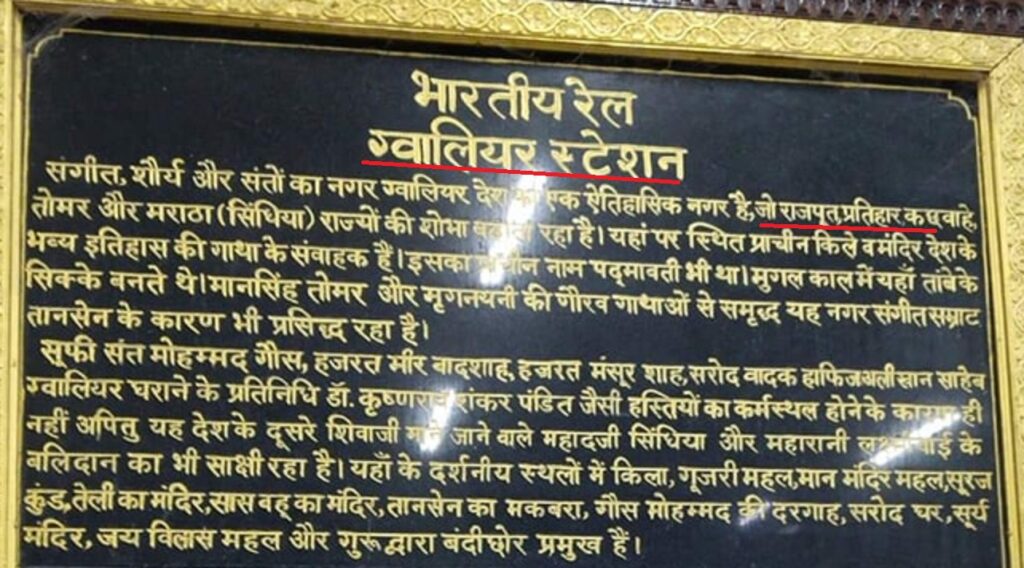 भारतीय रेल
ग्वालियर स्टेशन
संगीत, शौर्य और संतों का नगर ग्वालियर देश का एक ऐतिहासिक नगर है, जो राजपूत, प्रतिहार कछवाहे,
तोमर और मराठा (सिंधिया) राज्यों की शोभा रहा है। यहां पर स्थित प्राचीन किले व मंदिर देश के
भव्य इतिहास की गाथा के संवाहक हैं। इसका प्राचीन नाम पद्मावती भी था। मुगल काल में यहाँ तांबे के
सिक्के बनते थे। मानसिंह तोमर और मृगनयनी की गौरव गाथाओं से समृद्ध यह नगर संगीत सम्राट
तानसेन के कारण भी प्रसिद्ध रहा है।
सूफी संत मोहम्मद गौस, हजरत मीर बादशाह, हजरत मंसूर शाह, सरोद वादक हाफिज अली खान साहेब
ग्वालियर घराने के प्रतिनिधि डॉ. कृष्णराव शंकर पंडित जैसी हस्तियों का कर्मस्थल होने के कारण ही
नहीं अपितु यह देश के दूसरे शिवाजी माने जाने वाले महादजी सिंधिया और महारानी लक्ष्मीबाई के
बलिदान का भी साक्षी रहा है। यहाँ के दर्शनीय स्थलों में किला, गूजरी महल, मान मंदिर महल, सूरज
कुंड, तेली का मंदिर, सास वहू का मंदिर, तानसेन का मकबरा, गौस मोहम्मद की दरगाह, सरोद घर, सूर्य
मंदिर, जय विलास महल और गुरूद्वारा बंदीछोर प्रमुख हैं।